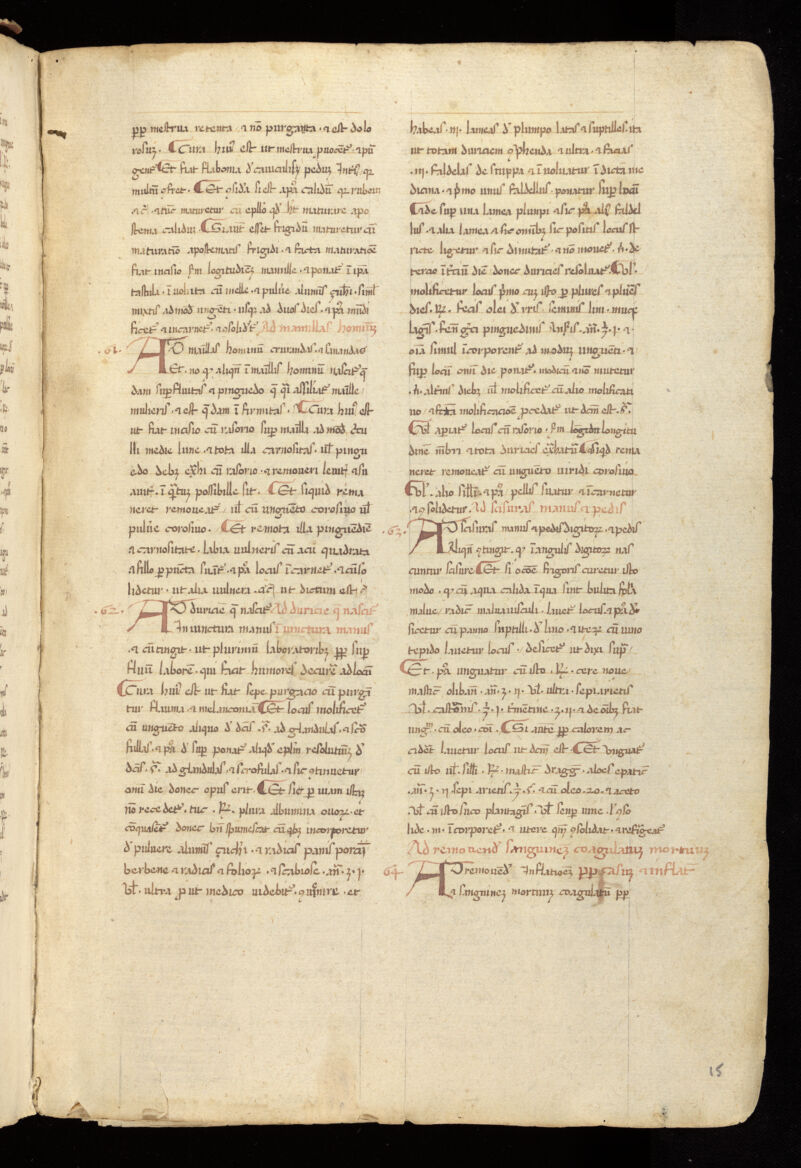 ꝓꝓ mestrua retenta ⁊ nō purgāta · ⁊ est dolo
rosuꝫ . Cura huiꝰ est ut mestrua ꝓuocēt᷑ · ⁊ pur̄
gent᷑ Et fiat flabomia d̓ cauiculisꝫ peduꝫ
mulin̄ ꝯfret . Et ꝯsid̓a si est apa calidū qꝛ rubem
⁊ c̄ · ⁊ tūc maturetur cū epl̄io qd̓ ht̄ maturare apo
stema calidū . Si aut̄ esset frigidū maturetur cū
maturatio apostematis frigidi · ⁊ facta maturatiōe
fiat incisio ẜm logitudieꝫ mamille · ⁊ ponat᷑ ī ipa
tastula · ī uoluta cū melle · ⁊ puluē aluminis · siml̄
mixtis ad modū ungēti · usqꝫ ad duos dies · ⁊ pᷓ mūdi
ficet᷑ ⁊ incarnet᷑ · ⁊ ꝯsolidet᷑ Ad mamillas hominū
.61. AD māillas hominū curandas · ⁊ sanandas
Et no qꝛ aliqn̄ ī māillis hominū nascit᷑ q̄
dam suꝑfluitas ⁊ pinguedo q̄ assiliat᷑ māille
mulieris · ⁊ est q̄dam īfirmitas . Cura huiꝰ est
ut fiat incisio cū rasorio suꝑ māillā ad mod̄ circu
lli medie lune · ⁊ tota illa carnositas · ul̄ pingu
edo debꝫ ex̄hi cū rasorio · ⁊ remoueri leuit᷑ ⁊ su
auit᷑ · ī q̄ntuꝫ possibille sit . Et siquid rema
neret remoueat᷑ ul̄ cū unguēto corosiuo ul̄
puluē corosiuo . Et remota illa pinguēdie
⁊ carnositate · labia uulneris cū acu quadrata
⁊ fillo ꝑpūcta suāt᷑ · ⁊ pᷓ locus īcarnet᷑ · ⁊ cūso
lidetur · ut alia uulnera · ⁊c̄ · ut dictum est
.62. AD duricie q̄ nascit᷑ Ad duricie q̄ nascit᷑
In iunctura manus ī iunctura manus
· ⁊ cūtingit · ut plurimū laboratoribꝫ ꝓꝓ suꝑ
fluū laborē · qui facit humores decurē ad locū
Cura huiꝰ est ut fiat sepe purgacio cū purgā
tur flauma · ⁊ melanconia Et locus molificet᷑
cū unguēto aliquo d̓ dcīs · ẜ · ad glandulas · ⁊ scro
fullas · ⁊ pᷓ d̓ suꝑ ponat᷑ aliqd̓ epl̄m resolutiuꝫ d̓
dcīs . ẜ · ad glandulas · ⁊ scrofulas · ⁊ sic ꝯtinuetur
omni die donec opus erit . Et sic ꝑ uiam istaꝫ
nō recedet᷑ . tūc . ℞ · plura albumina ouoꝝ · et
cōquasēt᷑ donec bn̄ spumescat cū qbꝫ incorporetur
d̓ puluere aluminis · ⁊ radicis panis porcini
berbene ⁊ radicis ⁊ folioꝝ · ⁊ scabiose · an̄ · ʒ · i ·
ul̄ · ultra ꝓut medico uidebit᷑ · ꝯuenire · et
habeas · iii · lameas d̓ plumpo latas ⁊ suptilles · ita
ut totam duriciem ꝯꝓhendā ⁊ ultra · ⁊ facias
· iii · faldelas de stuppa ⁊ īuoluatur ī dicta me
dicina · ⁊ pͥmo unus faldellus ponatur suꝑ locū
inde suꝑ una lamea plumpi ⁊ sic pᷓ aliꝰ faldel
lus · ⁊ alia lamea ⁊ sic omibꝫ sic positis locus st
ricte ligetur ⁊ sic dimitat᷑ · ⁊ nō mouet᷑ · n̄ · de
tercio ī terciū diē donec duricies resoluat᷑ Ul̄
molificetur locus pͥmo cuꝫ isto ꝑ plures ⁊ plures
dies . ℞ · fecis olei d̓ seminis lini · muci
laginis · fen̄ greci pinguedinis an̄ · ʒ · i · ⁊
oīa simul īcorporent᷑ ad moduꝫ unguēti · ⁊
suꝑ locū omi die ponat᷑ · modicū ⁊ nō mutetur
· n̄ · alt̄nis diebꝫ ul̄ molificet᷑ cū alio molificati
uo · ⁊ facta molificaciōe ꝓcedat᷑ ut dcm̄ est · ẜ ·
Ul̄ apiat᷑ locus cū rasorio · ẜm logitudinē longitu
dinē mēbri ⁊ tota duricies exhatur Et siqd̓ rema
neret remoueat᷑ cū unguēto uiridi corosiuo
Ul̄ · alio sil̄i · ⁊ pᷓ pellis suatur ⁊ īcarnetur
⁊ ꝯsolidetur . Ad scisuras manus ⁊ pedis
.63. AD scisuras manus ⁊ pedis digitoꝝ · ⁊ pedis
Aliqn̄ ꝯtingit · qꝛ ī angulis digitoꝝ nas
cuntur scisure Et si occōne frigoris curetur isto
modo · qꝛ cū aqua calida ī qua sint bulita folia
malue · radic̄ maluauisculi · lauet᷑ locus · ⁊ pᷓ de
sicetur cū panno suptilli · d̓ lino · ⁊ iteꝝ cū uino
tepido lauetur locus · desicet᷑ ut dixi suꝑ
Et · pᷓ unguatur cū isto . ℞ · cere noue
mastic̄ oliban̄ · an̄ · ʒ · ii · ul̄ · ultra · sepi arietis
ul̄ · castronis · ʒ · i · t̄mentine · ʒ · ii · ⁊ de oībꝫ fiat
ung̅m · cū oleo · coī · Si aute ꝓꝓ calorem ac
cident lauetur locus ut dcm̄ est . Et unguat᷑
cū isto ul̄ · sil̄i · ℞ · mastic̄ dragg̅ · aloes epatic̄
· an̄ · ʒ · ii · sepi arietis · ʒ · ẜ · ⁊ cū oleo · ro · ⁊ aceto
ul̄ cū isto suco plantagīs · ul̄ senꝑ uiue · ꝯso
lide · m̄ · īcorporet᷑ · ⁊ utere qm̄ ꝯsolidat · ⁊ refrigeat᷑
Ad remouend̓ sanguineꝫ coagulatuꝫ mortuuꝫ
64 AD remouēd̓ Inflatiōeꝫ ꝓꝓ casuꝫ ⁊ inflat
⁊ sanguineꝫ mortuuꝫ coagulatū ꝓꝓ
15